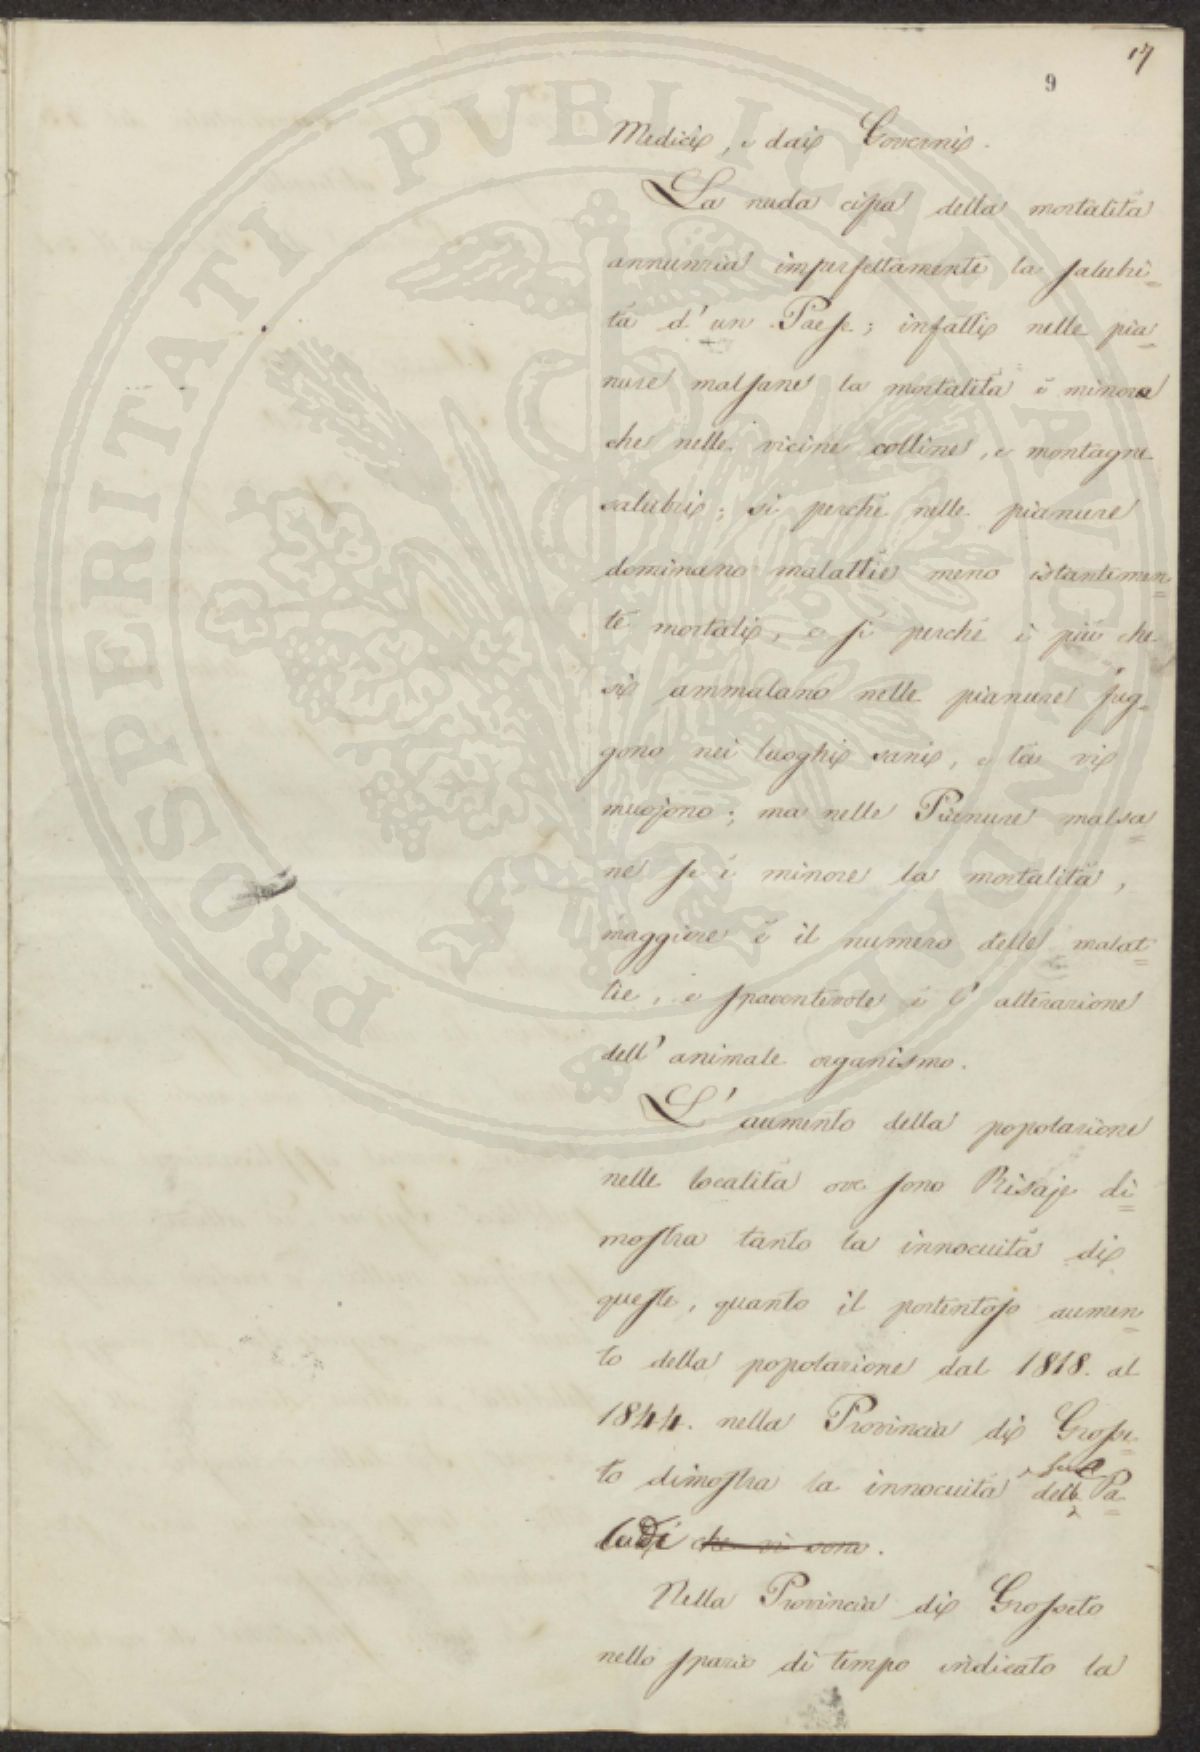 17
9
Medici, e dai Governi.
La nuda cifra della mortalità
annunzia imperfettamente la salubri=
tà d'un Paese; infatti nelle pia=
nure malsane la mortalità è minore
che nelle vicine colline, e montagne
salubri; sì perchè nelle pianure
dominano malattie meno istantemen=
te mortali, e sì perchè i più che
si ammalano nelle pianure fug=
gono nei luoghi sani, e là vi
muojono; ma nelle Pianure malsa=
ne se è minore la mortalità,
maggiore è il numero delle malat=
tie, e spaventevole è l'alterazione
dell'animale organismo.
L'aumento della popolazione
nelle località ove sono Risaje di=
mostra tanto la innocuità di
queste, quanto il portentoso aumen=
to della popolazione dal 1818. al
1844. nella Provincia di Grosse=
to dimostra la innocuità delle sue Pa=
ludi che vi sono.
Nella Provincia di Grosseto
nello spazio di tempo indicato la
PROSPERITATI PVBLICAE AVGENDAE